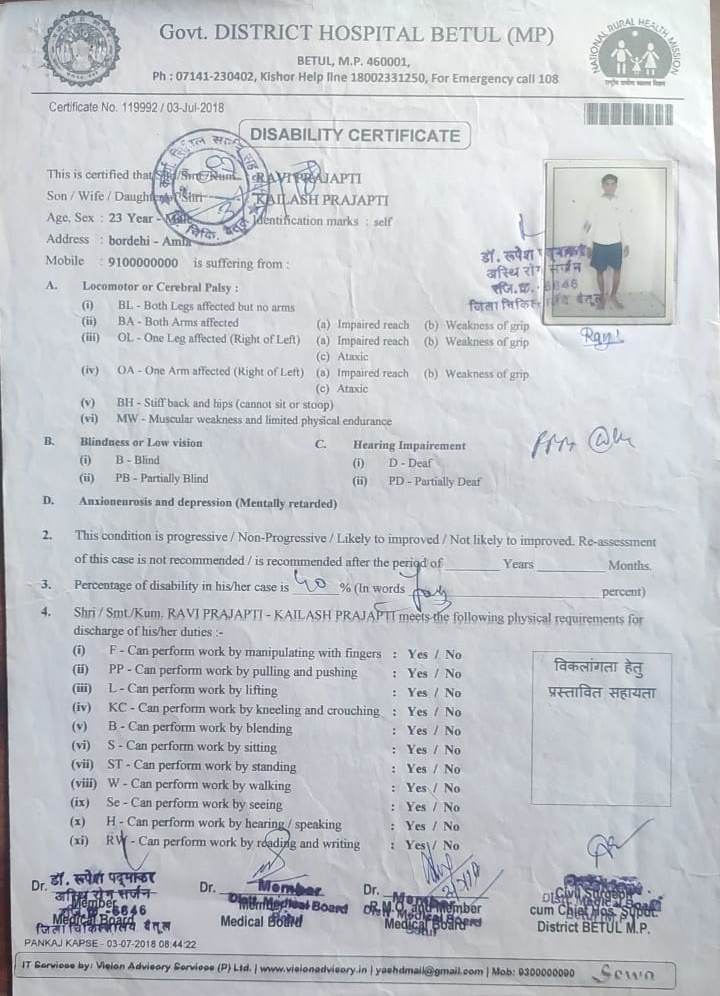 Govt. DISTRICT HOSPITAL BETUL (MP)
BETUL, M.P. 460001,
Ph : 07141-230402, Kishor Help line 18002331250, For Emergency call 108
NATIONAL RURAL HEALTH MISSION
Certificate No. 119992 / 03-Jul-2018
DISABILITY CERTIFICATE
This is certified that Shri/Smt/Kum. RAVI PRAJAPTI
Son / Wife / Daughter of Shri KAILASH PRAJAPTI
Age, Sex : 23 Year - Male Identification marks : self
Address : bordehi - Amla
Mobile : 9100000000 is suffering from :
डॉ. रूपेश पद्माकर
अस्थि रोग सर्जन
रजि.क्र.- 6646
जिला चिकित्सालय बैतूल
Ravi
A. Locomotor or Cerebral Palsy :
(i) BL - Both Legs affected but no arms
(ii) BA - Both Arms affected (a) Impaired reach (b) Weakness of grip
(iii) OL - One Leg affected (Right of Left) (a) Impaired reach (b) Weakness of grip
(c) Ataxic
(iv) OA - One Arm affected (Right of Left) (a) Impaired reach (b) Weakness of grip
(c) Ataxic
(v) BH - Stiff back and hips (cannot sit or stoop)
(vi) MW - Muscular weakness and limited physical endurance
B. Blindness or Low vision C. Hearing Impairement
(i) B - Blind (i) D - Deaf
(ii) PB - Partially Blind (ii) PD - Partially Deaf
D. Anxioneurosis and depression (Mentally retarded)
2. This condition is progressive / Non-Progressive / Likely to improved / Not likely to improved. Re-assessment
of this case is not recommended / is recommended after the period of Years Months.
3. Percentage of disability in his/her case is 40 % (In words forty percent)
4. Shri / Smt./Kum. RAVI PRAJAPTI - KAILASH PRAJAPTI meets the following physical requirements for
discharge of his/her duties :-
(i) F - Can perform work by manipulating with fingers : Yes / No
(ii) PP - Can perform work by pulling and pushing : Yes / No
(iii) L - Can perform work by lifting : Yes / No
(iv) KC - Can perform work by kneeling and crouching : Yes / No
(v) B - Can perform work by blending : Yes / No
(vi) S - Can perform work by sitting : Yes / No
(vii) ST - Can perform work by standing : Yes / No
(viii) W - Can perform work by walking : Yes / No
(ix) Se - Can perform work by seeing : Yes / No
(x) H - Can perform work by hearing / speaking : Yes / No
(xi) RW - Can perform work by reading and writing : Yes / No
विकलांगता हेतु
प्रस्तावित सहायता
Dr. डॉ. रूपेश पद्माकर
अस्थि रोग सर्जन
Member
रजि.क्र.-6646
Medical Board
जिला चिकित्सालय बैतूल
Dr. Member
Distt. Medical Board
Member
Medical Board
Dr. Member
R.M.O. and Member
Distt. Medical Board
Medical Board
Betul
Civil Surgeon
Distt. Medical Board
cum Chief Hos. Supdt.
District BETUL M.P.
PANKAJ KAPSE - 03-07-2018 08:44:22
IT Services by: Vision Advisory Services (P) Ltd. | www.visionadvisory.in | yashdmail@gmail.com | Mob: 9300000090